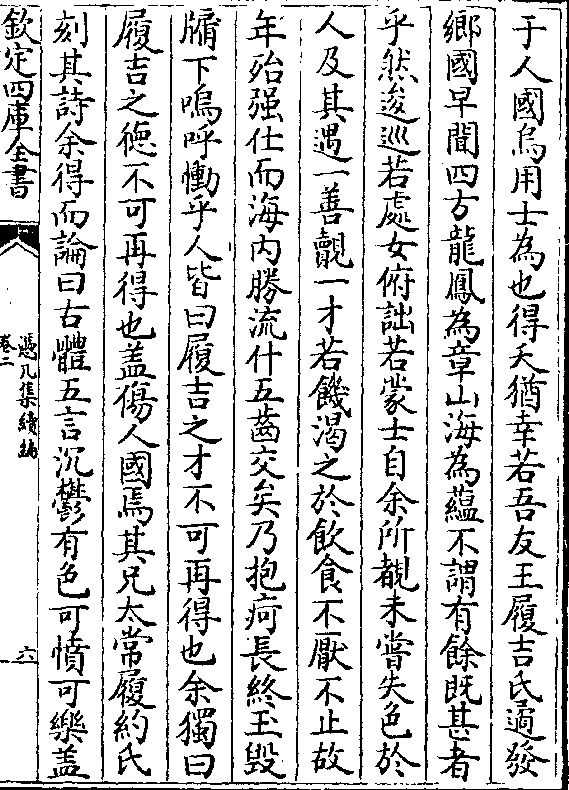 于人國烏用士為也得夭猶幸若吾友王履吉氏適發
鄉國早聞四方龍鳳為章山海為蘊不謂有餘既甚者
乎然逡巡若處女俯詘若蒙士自余所覩未嘗失色於
人及其遇一善覿一才若饑渴之於飲食不厭不止故
年殆强仕而海内勝流什五齒交矣乃抱疴長終玉毁
牖下嗚呼慟乎人皆曰履吉之才不可再得也余獨曰
履吉之德不可再得也盖傷人國焉其兄太常履約氏
刻其詩余得而論曰古體五言沉鬱有色可憤可樂盖
欽定四庫全書
憑几集續編
卷二
六